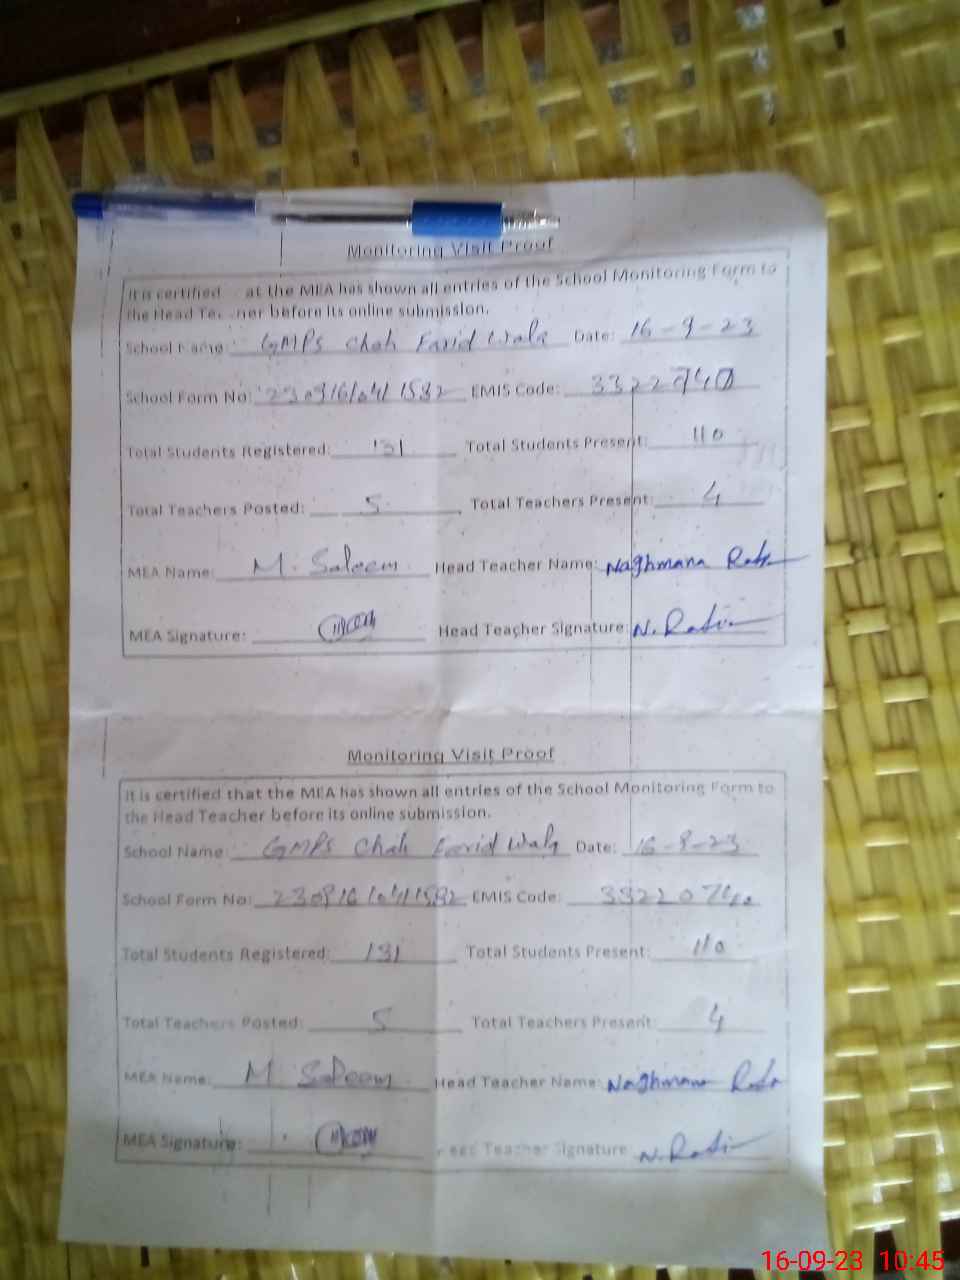 Monitoring Visit Proof
It is certified at the MEA has shown all entries of the School Monitoring Form to
the Head before its online submission.
School Name: GMPS Chah Farid Wala Date: 16-9-23
School Form No: EMIS Code:
Total Students Registered: 131 Total Students Present: 110
Total Teachers Posted: 5 Total Teachers Present: 4
MEA Name: M. Saleem Head Teacher Name: Naghmana
MEA Signature: Head Teacher Signature: N.
Monitoring Visit Proof
It is certified that the MEA has shown all entries of the School Monitoring Form to
the Head Teacher before its online submission.
School Name GMPS Chah Farid Wala Date: 16-9-23
School Form No: EMIS Code: 33220740
Total Students Registered: 131 Total Students Present: 110
Total Teachers Posted: 5 Total Teachers Present: 4
MEA Name: M Saleem Head Teacher Name: Naghmana
MEA Signature: Teacher Signature N.
16-09-23 10:45